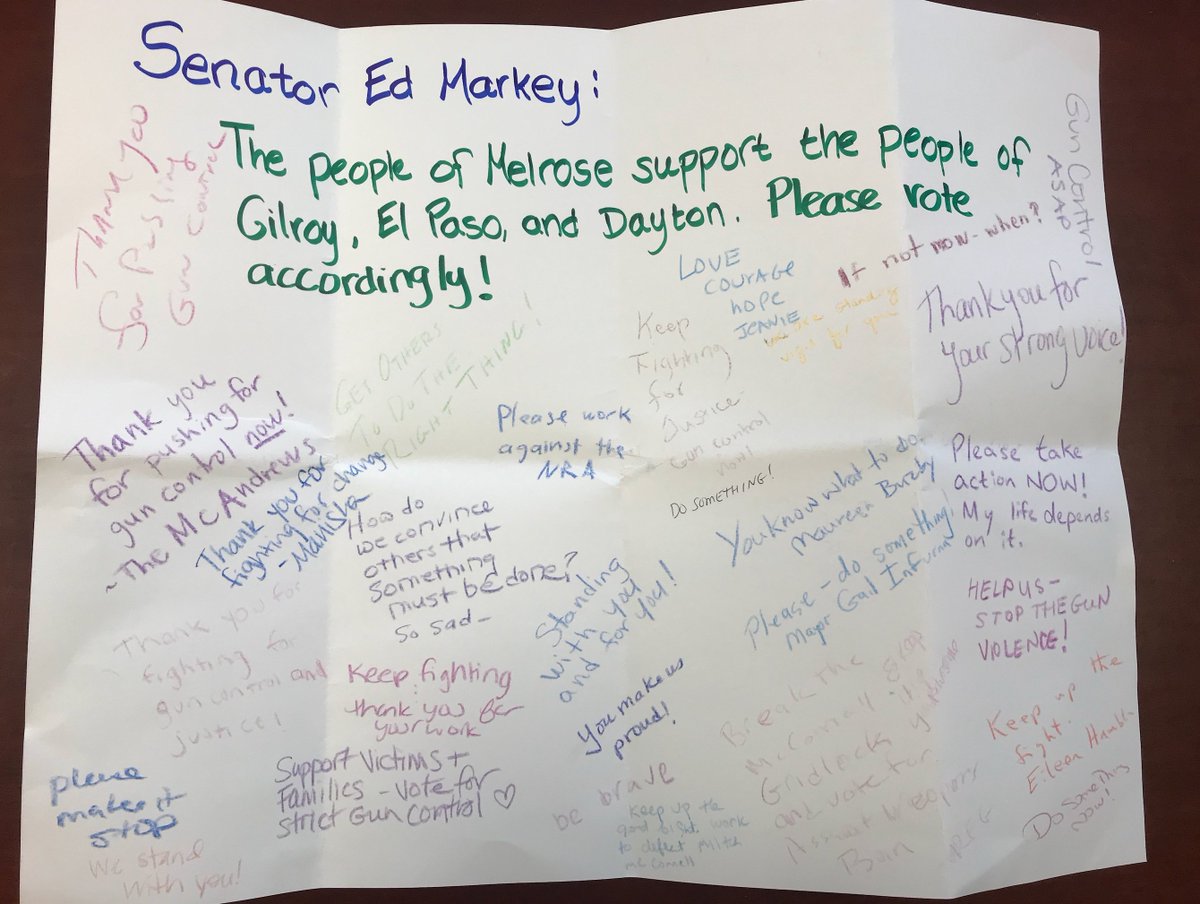 Senator Ed Markey:
The people of Melrose support the people of
Gilroy, El Paso, and Dayton. Please vote
accordingly!
Thank you
for Pushing
Gun Control
Gun Control
ASAP
If not now- when?
LOVE
COURAGE
hope
JENNIE
we are standing
right for you
Thank you for
your strong voice!
Keep
Fighting
for
Justice
Gun control
now!
GET OTHERS
TO DO THE
RIGHT THING!
Please work
against the
NRA
Thank you
for pushing for
gun control now!
- The McAndrews
Thank you for
fighting for change
- Manisha
How do
we convince
others that
Something
must be done?
So sad-
DO SOMETHING!
You know what to do.
Maureen Buzby
Please take
action NOW!
My life depends
on it.
Please - do something!
Mayor Gail Infurna
HELP US-
STOP THE GUN
VIOLENCE!
Standing
with you
and for you!
Thank you for
fighting for
gun control and
justice!
Keep fighting
thank you for
your work
You make us
proud!
Break the
McConnell
Gridlock
and vote for
Assault weapons
Ban
Keep up the
fight.
Eileen
please
make it
STOP
Support Victims +
Families - Vote for
strict Gun Control ♡
be brave
Keep up the
good fight. work
to defeat Mitch
McConnell
Do Something
now!
We stand
with you!